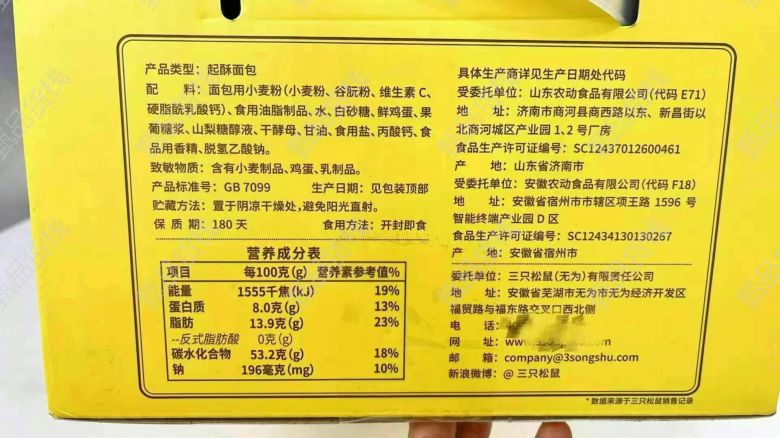 产品类型：起酥面包
配　料：面包用小麦粉（小麦粉、谷朊粉、维生素C、
硬脂酰乳酸钙）、食用油脂制品、水、白砂糖、鲜鸡蛋、果
葡糖浆、山梨糖醇液、干酵母、甘油、食用盐、丙酸钙、食
品用香精、脱氢乙酸钠。
致敏物质：含有小麦制品、鸡蛋、乳制品。
产品标准号：GB 7099　生产日期：见包装顶部
贮藏方法：置于阴凉干燥处，避免阳光直射。
保 质 期：180天　食用方法：开封即食
营养成分表
项目　每100克(g)　营养素参考值%
能量　1555千焦(kJ)　19%
蛋白质　8.0克(g)　13%
脂肪　13.9克(g)　23%
--反式脂肪酸　0克(g)
碳水化合物　53.2克(g)　18%
钠　196毫克(mg)　10%
具体生产商详见生产日期处代码
受委托单位：山东农动食品有限公司（代码 E71）
地　址：济南市商河县商西路以东、新昌街以
北商河城区产业园 1、2 号厂房
食品生产许可证编号：SC12437012600461
产　地：山东省济南市
受委托单位：安徽农动食品有限公司（代码 F18）
地　址：安徽省宿州市市辖区项王路 1596 号
智能终端产业园 D 区
食品生产许可证编号：SC12434130130267
产　地：安徽省宿州市
委托单位：三只松鼠（无为）有限责任公司
地　址：安徽省芜湖市无为市无为经济开发区
福贸路与福东路交叉口西北侧
电　话：
网　址：www.3songshu.com
邮　箱：company@3songshu.com
新浪微博：@ 三只松鼠
*数据来源于三只松鼠销售记录